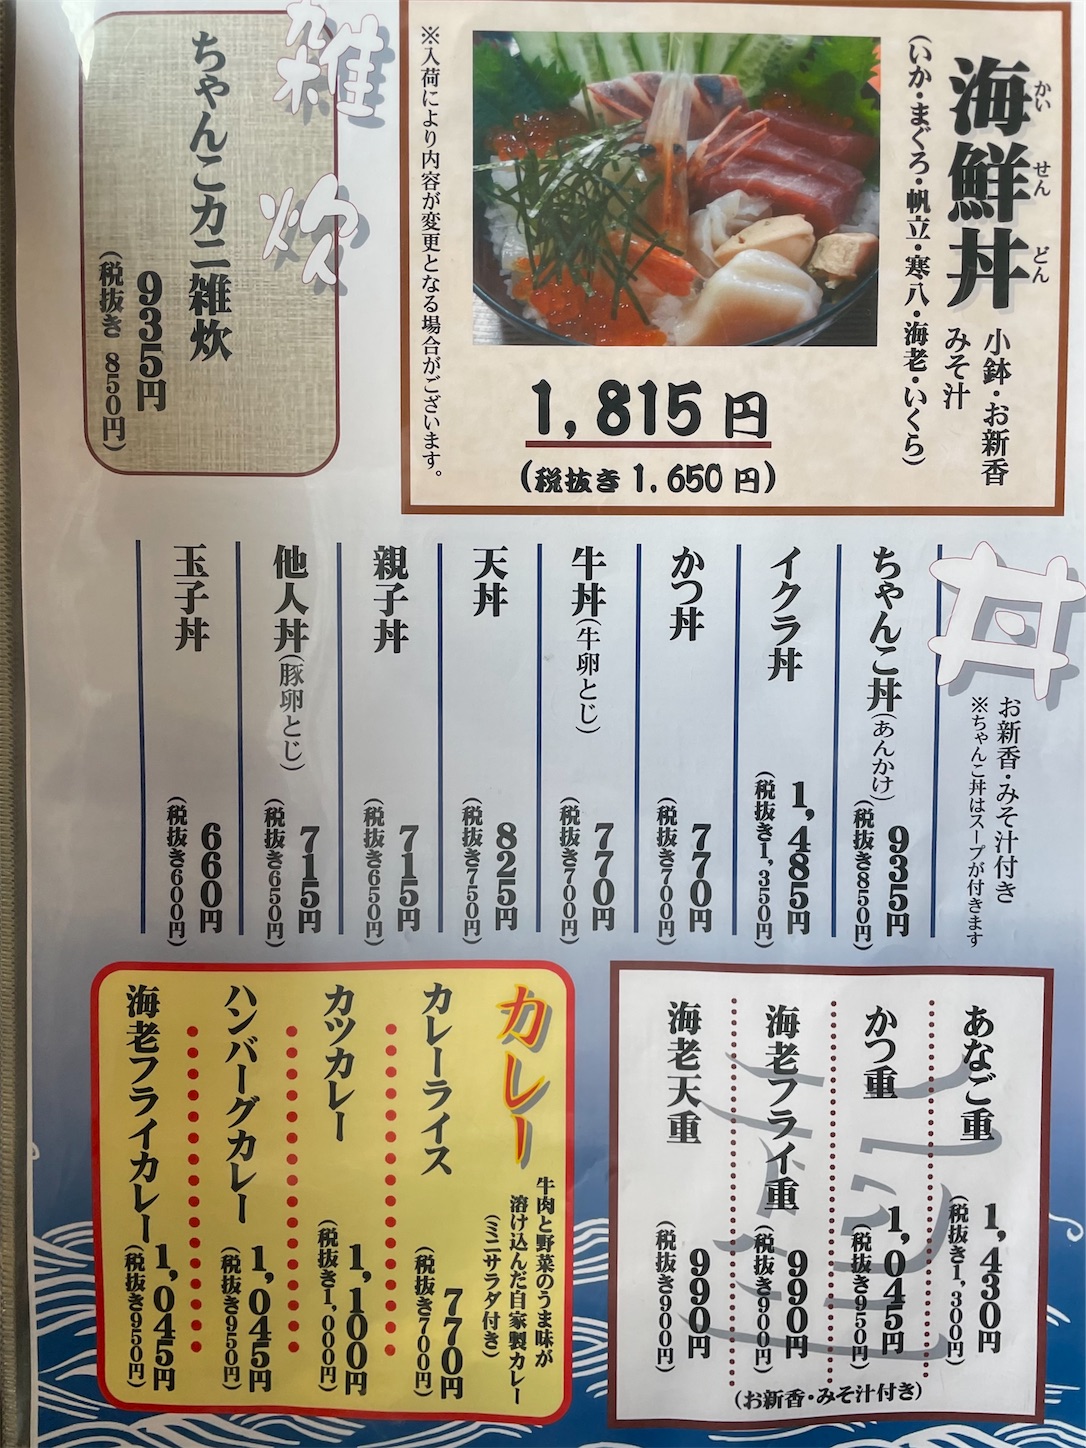 海鮮丼
かい せん どん
小鉢・お新香
みそ汁
(いか・まぐろ・帆立・寒八・海老・いくら)
1,815円
(税抜き1,650円)
※入荷により内容が変更となる場合がございます。
雑炊
ちゃんこカニ雑炊
935円
(税抜き 850円)
丼
お新香・みそ汁付き
※ちゃんこ丼はスープが付きます
ちゃんこ丼(あんかけ)
935円
(税抜き850円)
イクラ丼
1,485円
(税抜き1,350円)
かつ丼
770円
(税抜き700円)
牛丼(牛卵とじ)
770円
(税抜き700円)
天丼
825円
(税抜き750円)
親子丼
715円
(税抜き650円)
他人丼(豚卵とじ)
715円
(税抜き650円)
玉子丼
660円
(税抜き600円)
重
あなご重
1,430円
(税抜き1,300円)
かつ重
1,045円
(税抜き950円)
海老フライ重
990円
(税抜き900円)
海老天重
990円
(税抜き900円)
(お新香・みそ汁付き)
カレー
牛肉と野菜のうま味が
溶け込んだ自家製カレー
(ミニサラダ付き)
カレーライス
770円
(税抜き700円)
カツカレー
1,100円
(税抜き1,000円)
ハンバーグカレー
1,045円
(税抜き950円)
海老フライカレー
1,045円
(税抜き950円)